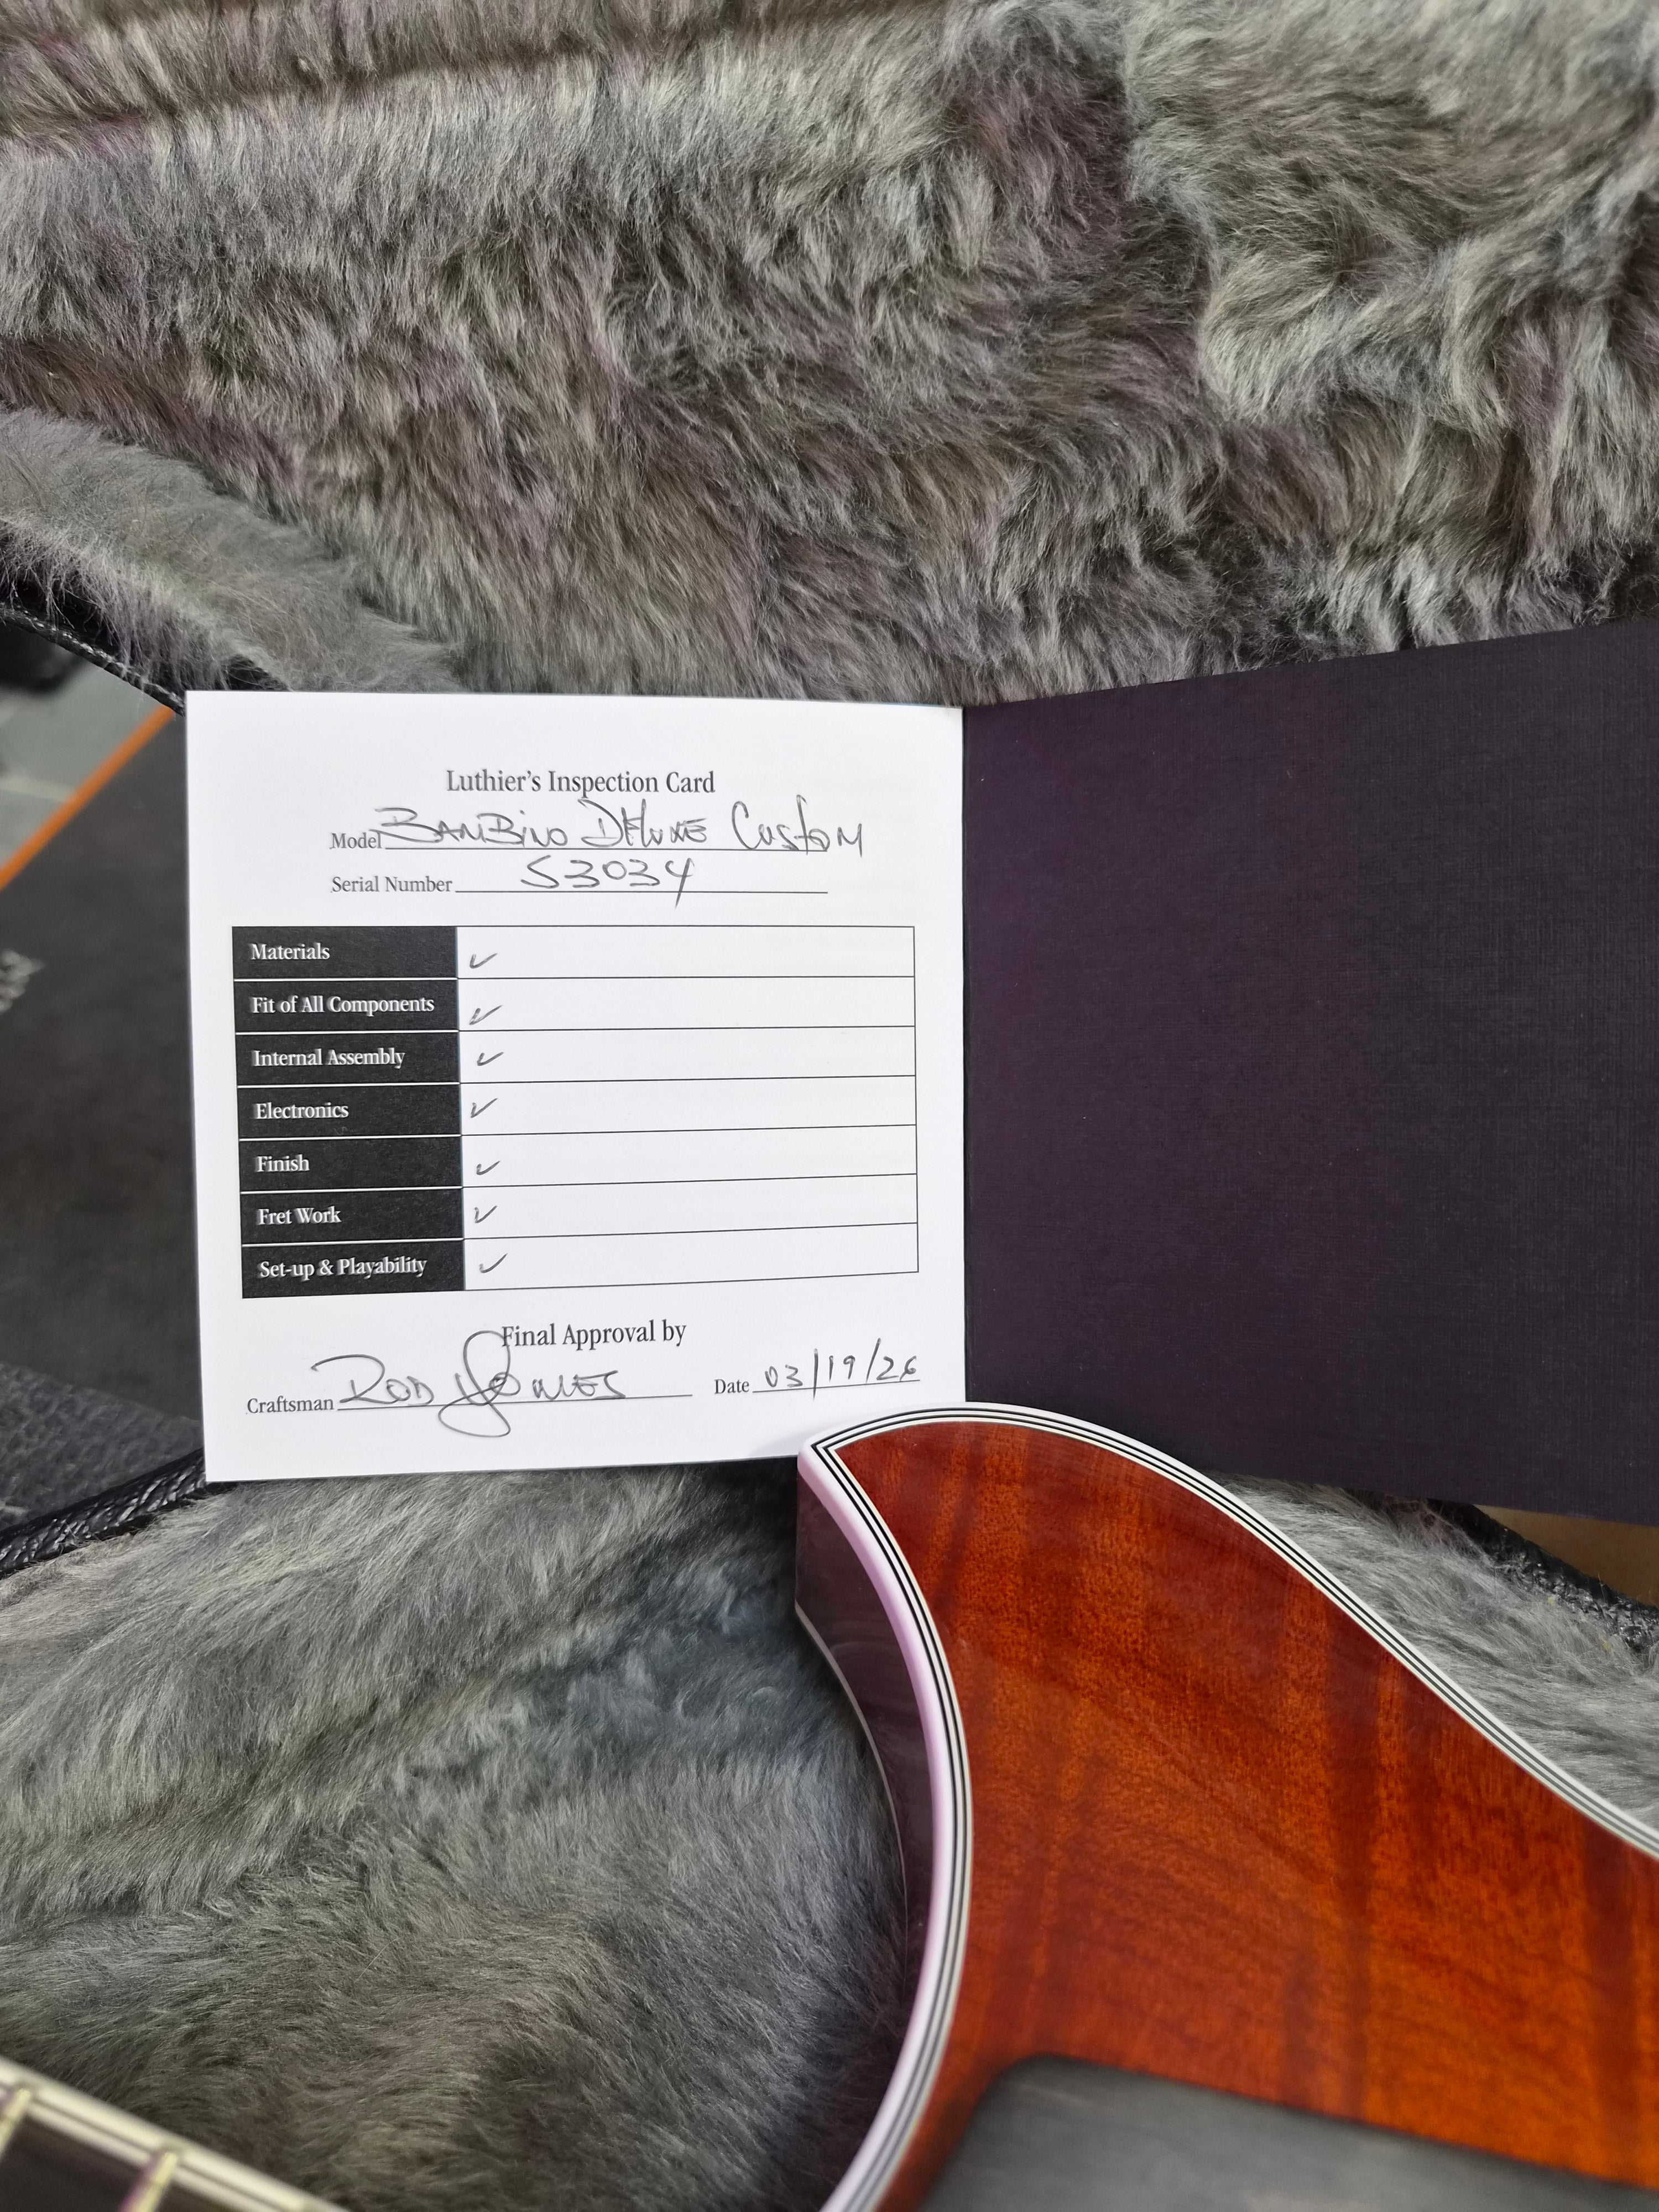 Luthier's Inspection Card
Model BAMBINO DELUXE CUSTOM
Serial Number S3034
Materials ✓
Fit of All Components ✓
Internal Assembly ✓
Electronics ✓
Finish ✓
Fret Work ✓
Set-up & Playability ✓
Final Approval by
Craftsman ROD JONES Date 03/19/26